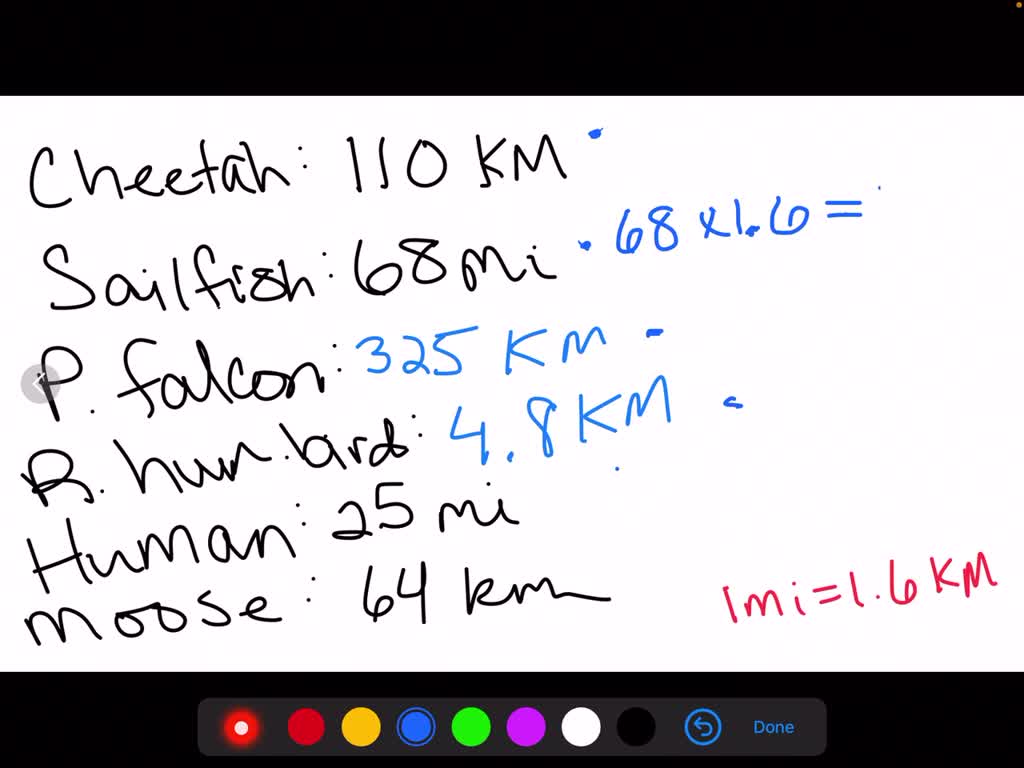 Cheetah: 110 KM
Sailfish: 68 mi · 68 x 1.6 =
P. falcon: 325 KM
R. hum.bird: 4.8 KM
Human: 25 mi
moose: 64 km
1mi = 1.6 KM
Done